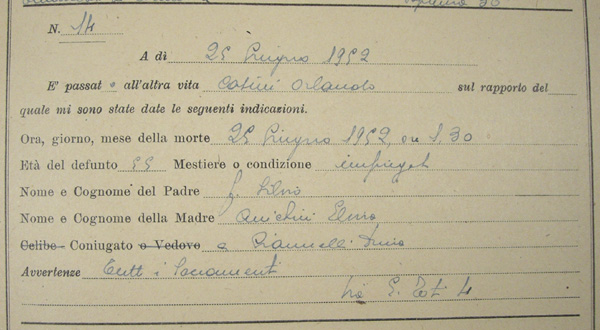 N. 14
A dì 25 Giugno 1952
E' passat o all'altra vita Catini Orlando sul rapporto del
quale mi sono state date le seguenti indicazioni.
Ora, giorno, mese della morte 25 Giugno 1952, ore 1,30
Età del defunto 55 Mestiere o condizione impiegat
Nome e Cognome del Padre fu Silvio
Nome e Cognome della Madre Anichini Elvira
Celibe - Coniugato o Vedovo a
Avvertenze Tutti i Sacramenti
Via E. Toti 4